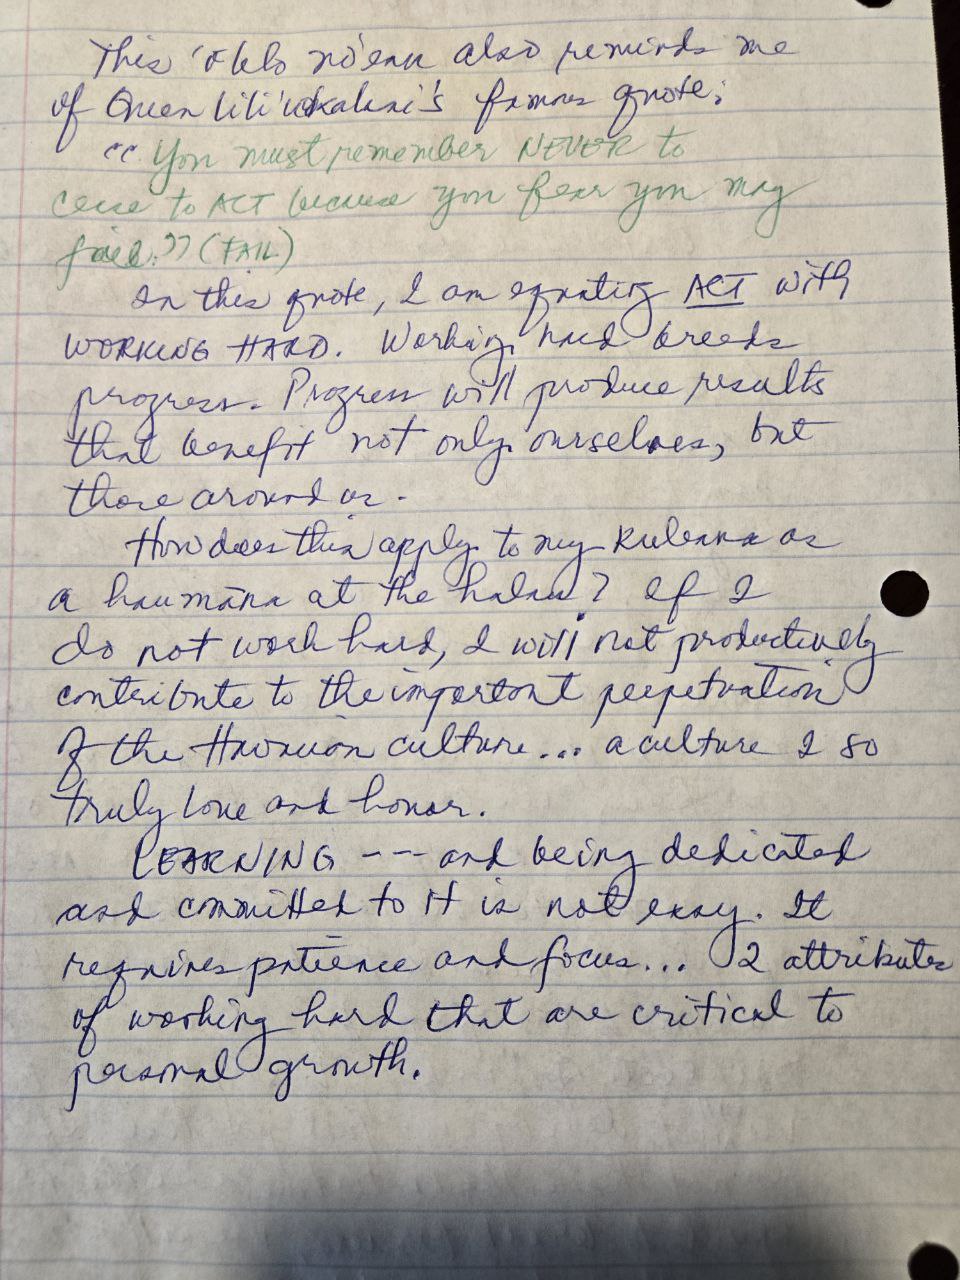 This 'ōlelo no'eau also reminds me
of Queen Lili'uokalani's famous quote:
"You must remember NEVER to
cease to ACT because you fear you may
fail." (FAIL)
In this quote, I am equating ACT with
WORKING HARD. Working hard breeds
progress. Progress will produce results
that benefit not only ourselves, but
those around us.
How does this apply to my kuleana as
a haumāna at the halau? If I
do not work hard, I will not productively
contribute to the important perpetuation
of the Hawaiian culture... a culture I so
truly love and honor.
LEARNING --- and being dedicated
and committed to it is not easy. It
requires patience and focus... 2 attributes
of working hard that are critical to
personal growth.